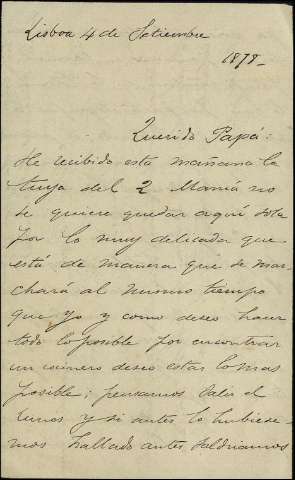 Lisboa 4 de Setiembre
1878_
Querido Papá:
He recibido esta mañana la
tuya del 2 Mamá no
se quiere quedar aquí sola
por lo muy delicada que
está de manera que se mar-
chará al mismo tiempo
que yo y como deseo hacer
todo lo posible por encontrar
un deseo estar lo mas
posible; pensamos salir el
lunes y si antes lo hubiese-
mos hallado antes saldriamos